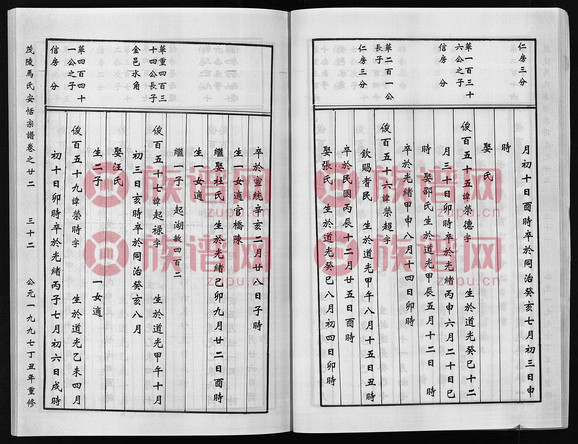 仁房三分
華一百三十
六公之子
信房 分
華二百一公
長子
仁房三分
月初十日酉時卒於同治癸亥七月初三日申
時
娶 氏
俊百五十五諱榮德字 生於道光癸巳十二
月三十日卯時卒於光緒丙申六月二十日巳
時 娶邵氏 生於道光甲辰五月十二日 時
卒於光緒甲申八月十四日卯時
俊百五十六諱榮超字
欽賜耆民 生於道光甲午八月十五日丑時
卒於民國丙辰十二月廿五日酉時
娶張氏 生於道光癸巳八月初四日卯時
華重四百三
十四公長子
金邑水角
華四百四十
一公之子
信房 分
卒於宣統辛亥二月廿八日子時
生一女適官橋陳
繼娶杜氏 生於光緒己卯九月廿二日酉時
生一女適
繼子 起湖敏四百二
俊百五十七諱起祿字 生於道光甲午十月
初三日亥時卒於同治癸亥八月
娶汪氏
生二子 一女適
俊百五十九諱榮時字 生於道光乙未四月
初十日卯時卒於光緒丙子七月初六日戌時
茂陵馬氏安恬宗譜卷之廿二 三十二 公元一九九七丁丑年重修
族谱网
zupu.cn
族谱网
zupu.cn
族谱网
zupu.cn
族谱网
zupu.cn